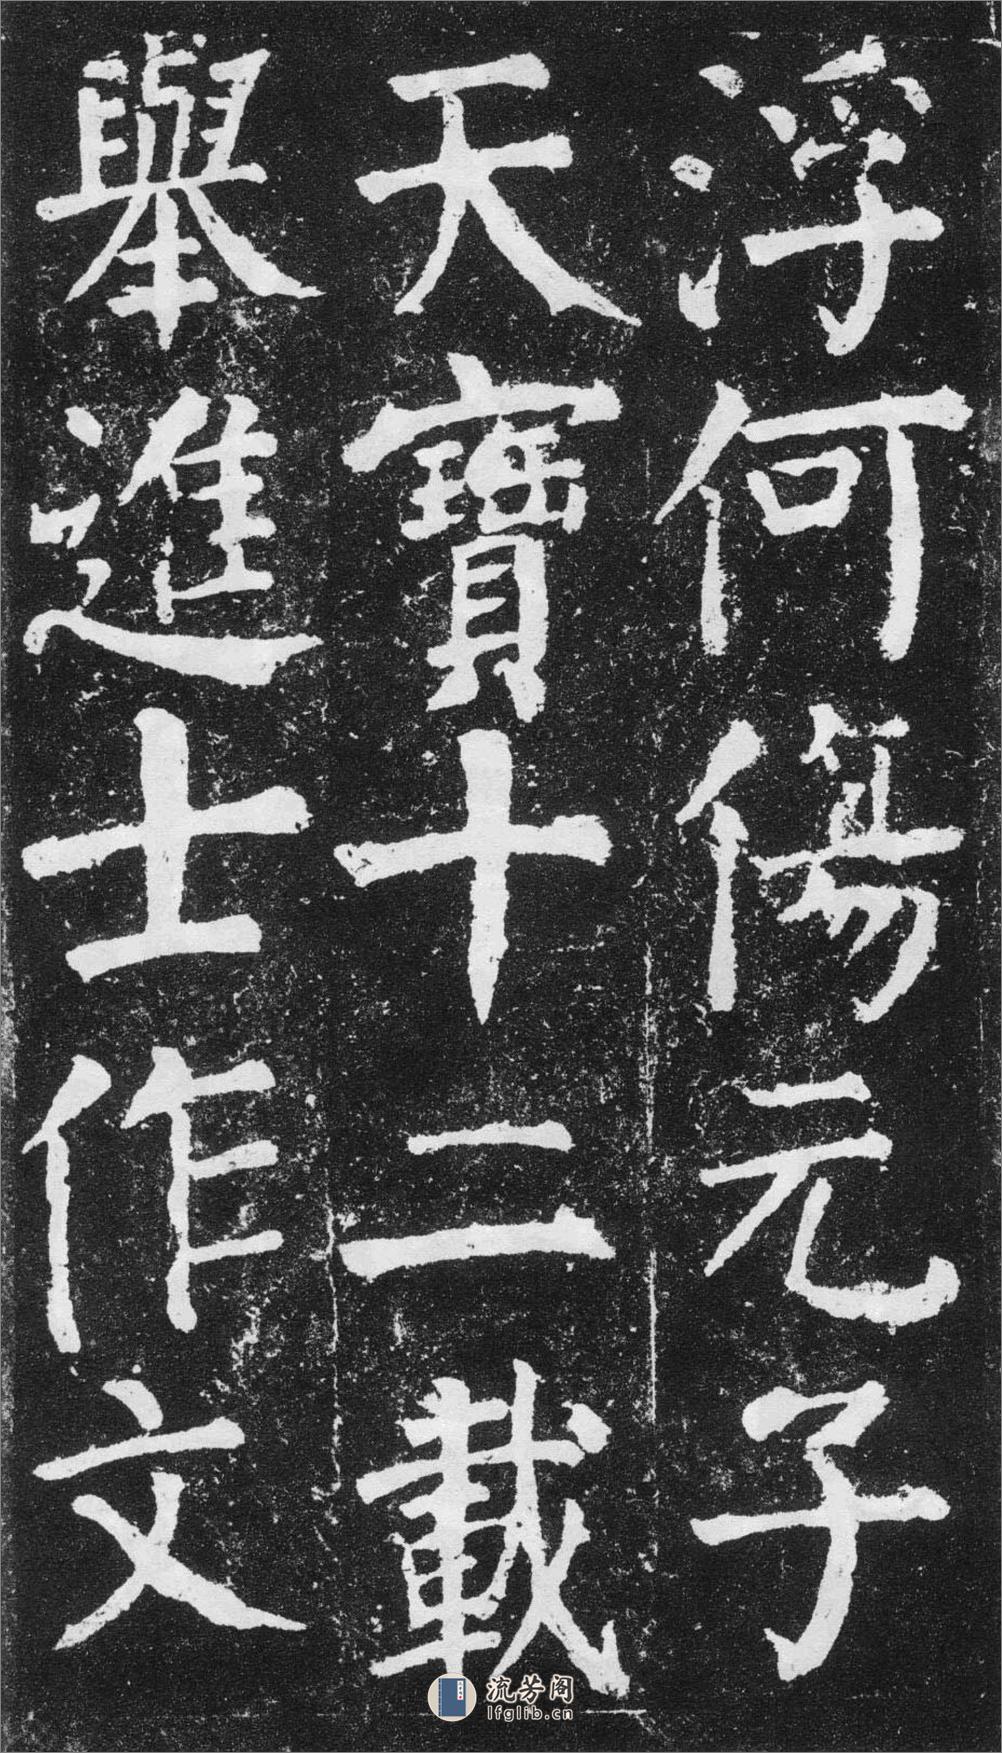 浮何傷元子
天寶十二載
舉進士作文
流芳阁
lfglib.cn